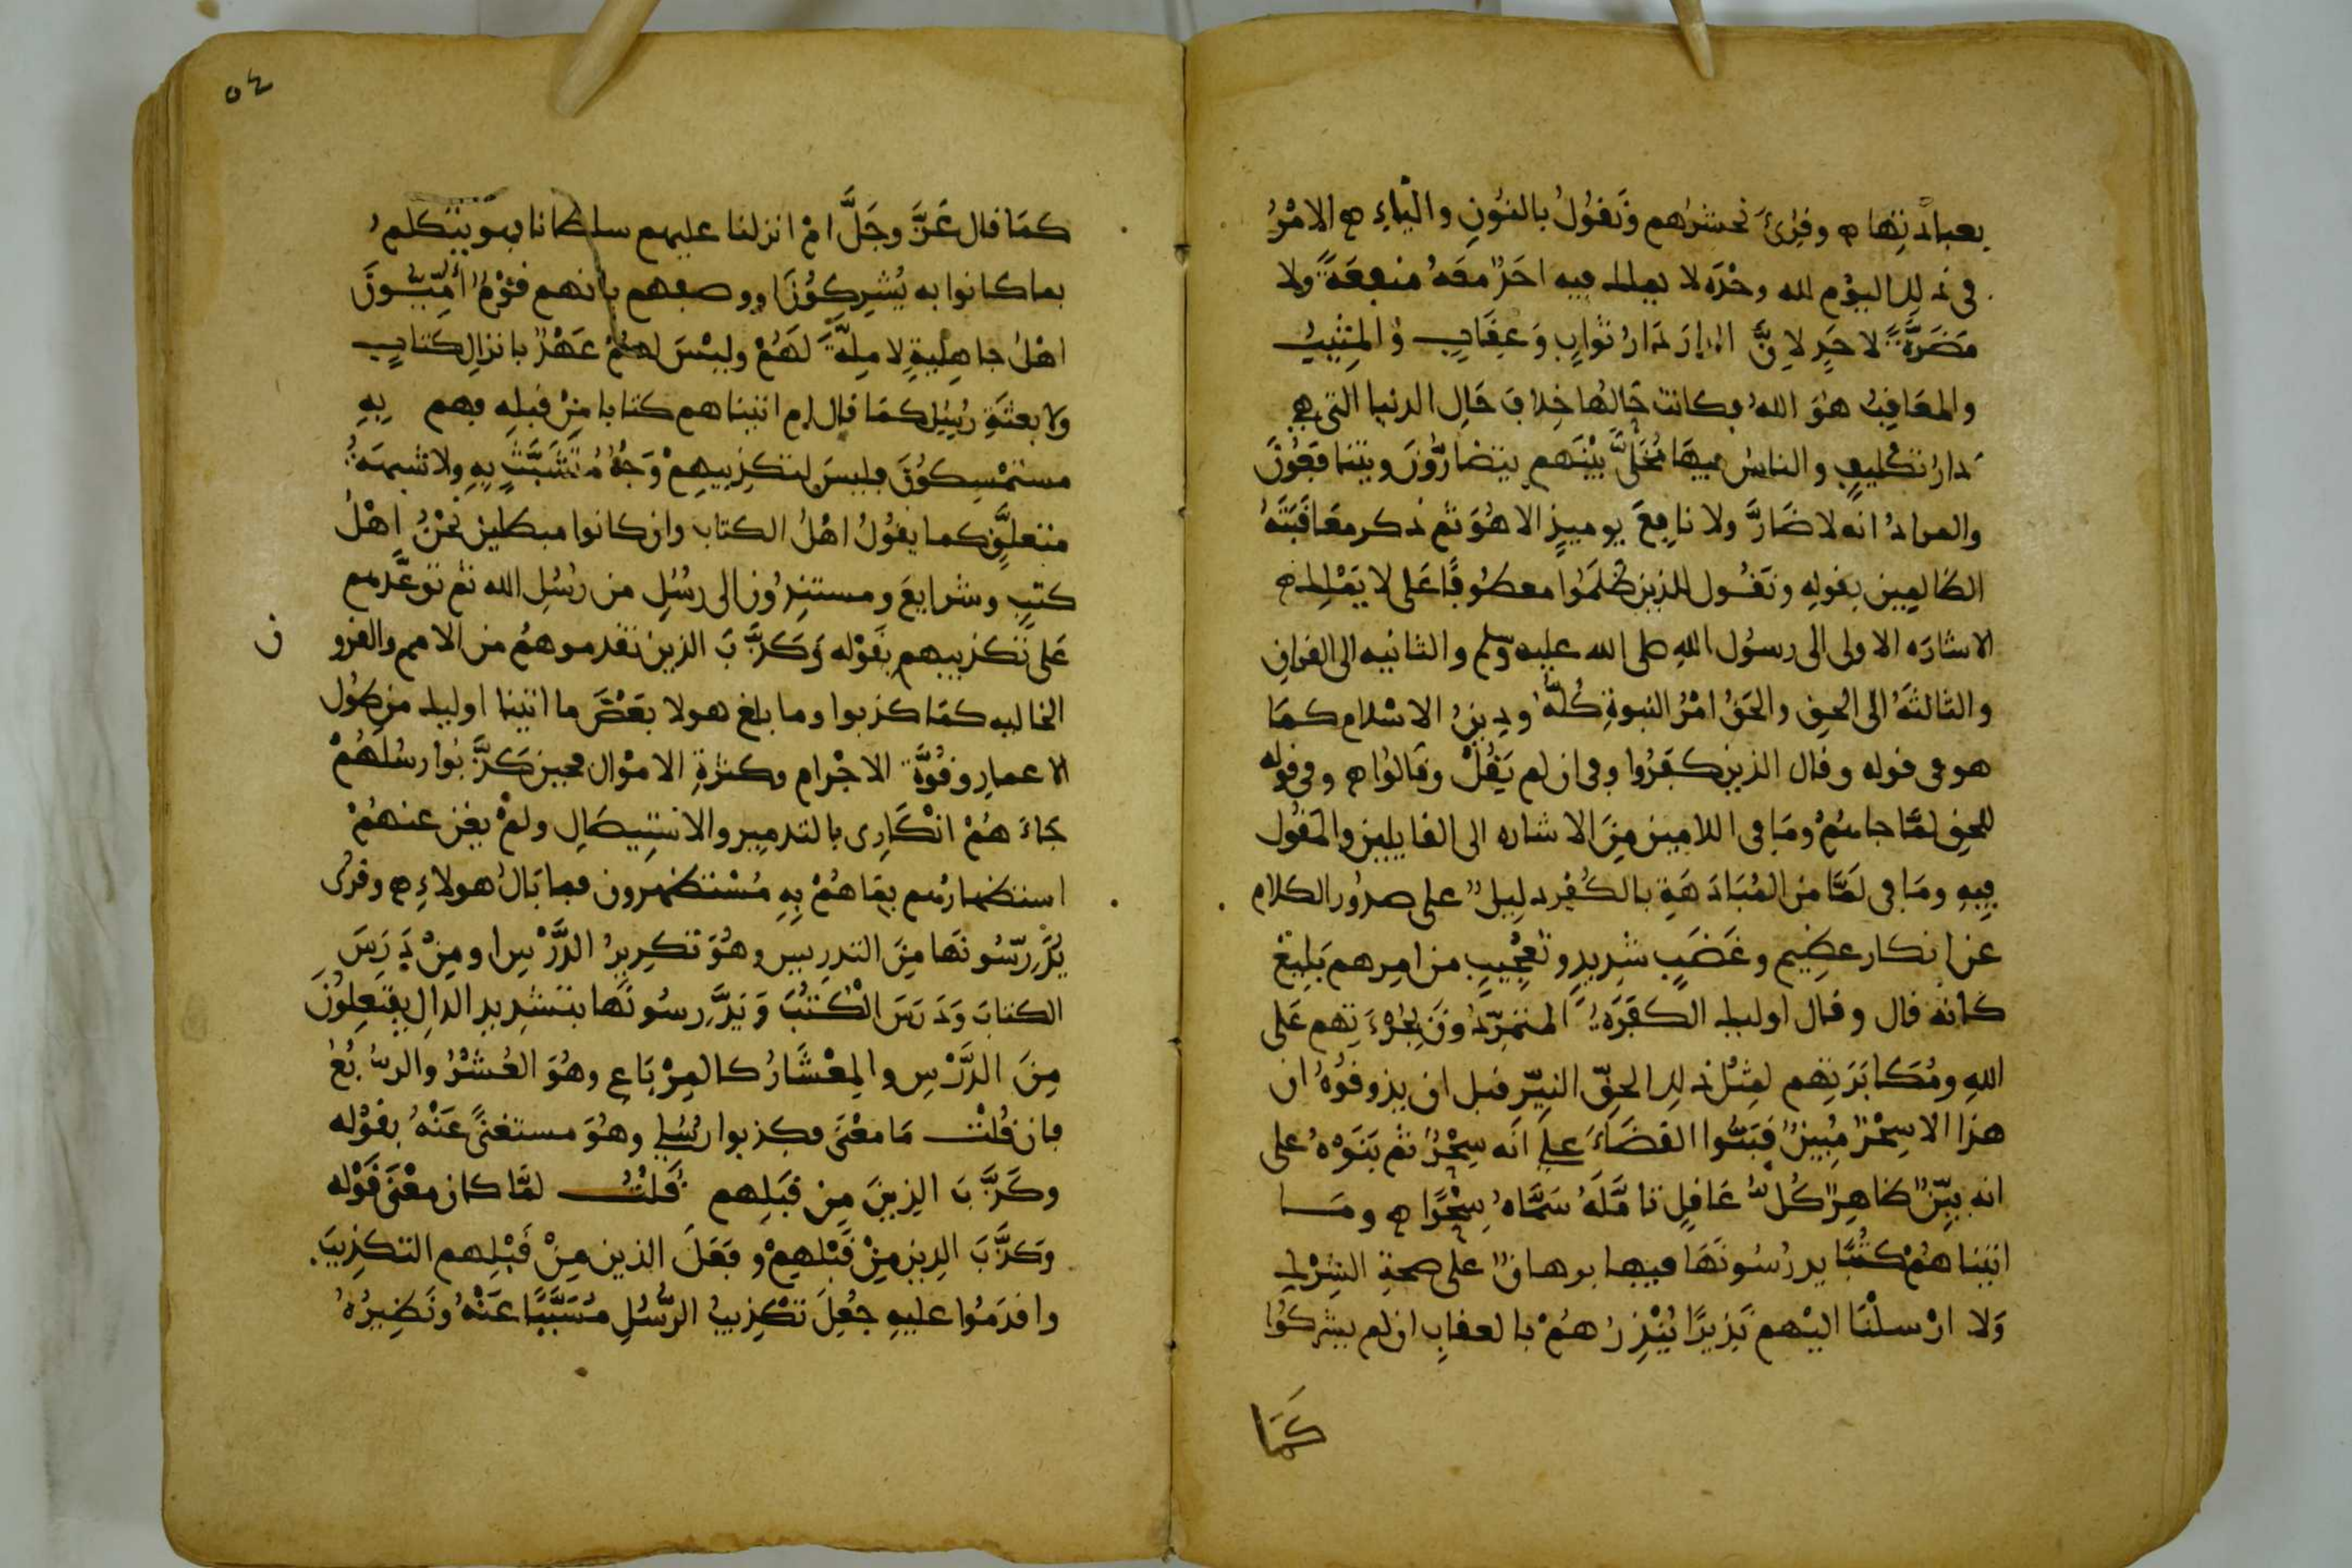 بعبادتها ه وقرئ نحشرهم ونقول بالنون والياء ه الامر
في ذلك اليوم لله وحده لا يملك فيه احد منفعة ولا
مضرة لاحد لان الدار دار ثواب وعقاب والمثيب
والمعاقب هو الله فكانت حالها خلاف حال الدنيا التي هي
دار تكليف والناس فيها مخلى بينهم يتضارون ويتنافعون
والمراد انه لا ضار ولا نافع يوميذ الا هو ثم ذكر معاقبته
الظالمين بقوله ونقول للذين ظلموا معطوفا على لا يملك ه
الاشاره الاولى الى رسول الله صلى الله عليه وسلم والثانيه الى القران
والثالثة الى الحق والحق امر النبوة كله ودين الاسلام كما
هو في قوله وقال الذين كفروا وفي ان لم يقل وقالوا ه وفي قوله
للحق لما جاءهم وما في اللامين من الاشاره الى القايلين والمقول
فيه وما في لما من المبادهة بالكفر دليل على صدور الكلام
عن انكار عظيم وغضب شديد وتعجيب من امرهم بليغ
كانه قال وقال اوليك الكفرة المتمردون بجرءتهم على
الله ومكابرتهم لمثل ذلك الحق النير قبل ان يذوقوه ان
هذا الا سحر مبين فبتوا القضاء على انه سحر ثم بتوه على
انه بين ظاهر كل عاقل تامله سماه سحرا ه وما
اتيناهم كتبا يدرسونها فيها برهان على صحة الشرك
ولا ارسلنا اليهم نذيرا ينذرهم بالعقاب ان لم يشركوا
كما
٥٤
كما قال عز وجل ام انزلنا عليهم سلطانا فهو يتكلم
بما كانوا به يشركون او وصفهم بانهم قوم اميون
اهل جاهلية لا ملة لهم وليس لهم عهد بانزال كتاب
ولا بعثة رسول كما قال ام اتيناهم كتابا من قبله فهم به
مستمسكون فليس لتكذيبهم وجه متشبث به ولا شبهة
متعلق كما يقول اهل الكتاب وان كانوا مبطلين نحن اهل
كتب وشرايع ومستندون الى رسل من رسل الله ثم توعدهم
على تكذيبهم بقوله وكذب الذين تقدموهم من الامم والقرو
ن
الخاليه كما كذبوا وما بلغ هولا بعض ما اتينا اوليك من طول
الاعمار وقوة الاجرام وكثرة الاموال فحين كذبوا رسلهم
جاءهم انكاري بالتدمير والاستيصال ولم يغن عنهم
استظهارهم بما هم به مستظهرون فما بال هولاء ه وقرئ
يدرسونها من التدريس وهو تكرير الدرس او من درس
الكتاب ودرس الكتب ويدرسونها بتشديد الدال يفتعلون
من الدرس والمعشار كالمرباع وهو العشر والربع
فان قلت ما معنى فكذبوا رسلي وهو مستغنى عنه بقوله
وكذب الذين من قبلهم قلت لما كان معنى قوله
وكذب الذين من قبلهم وفعل الذين من قبلهم التكذيب
واقدموا عليه جعل تكذيب الرسل مسببا عنه ونظيره